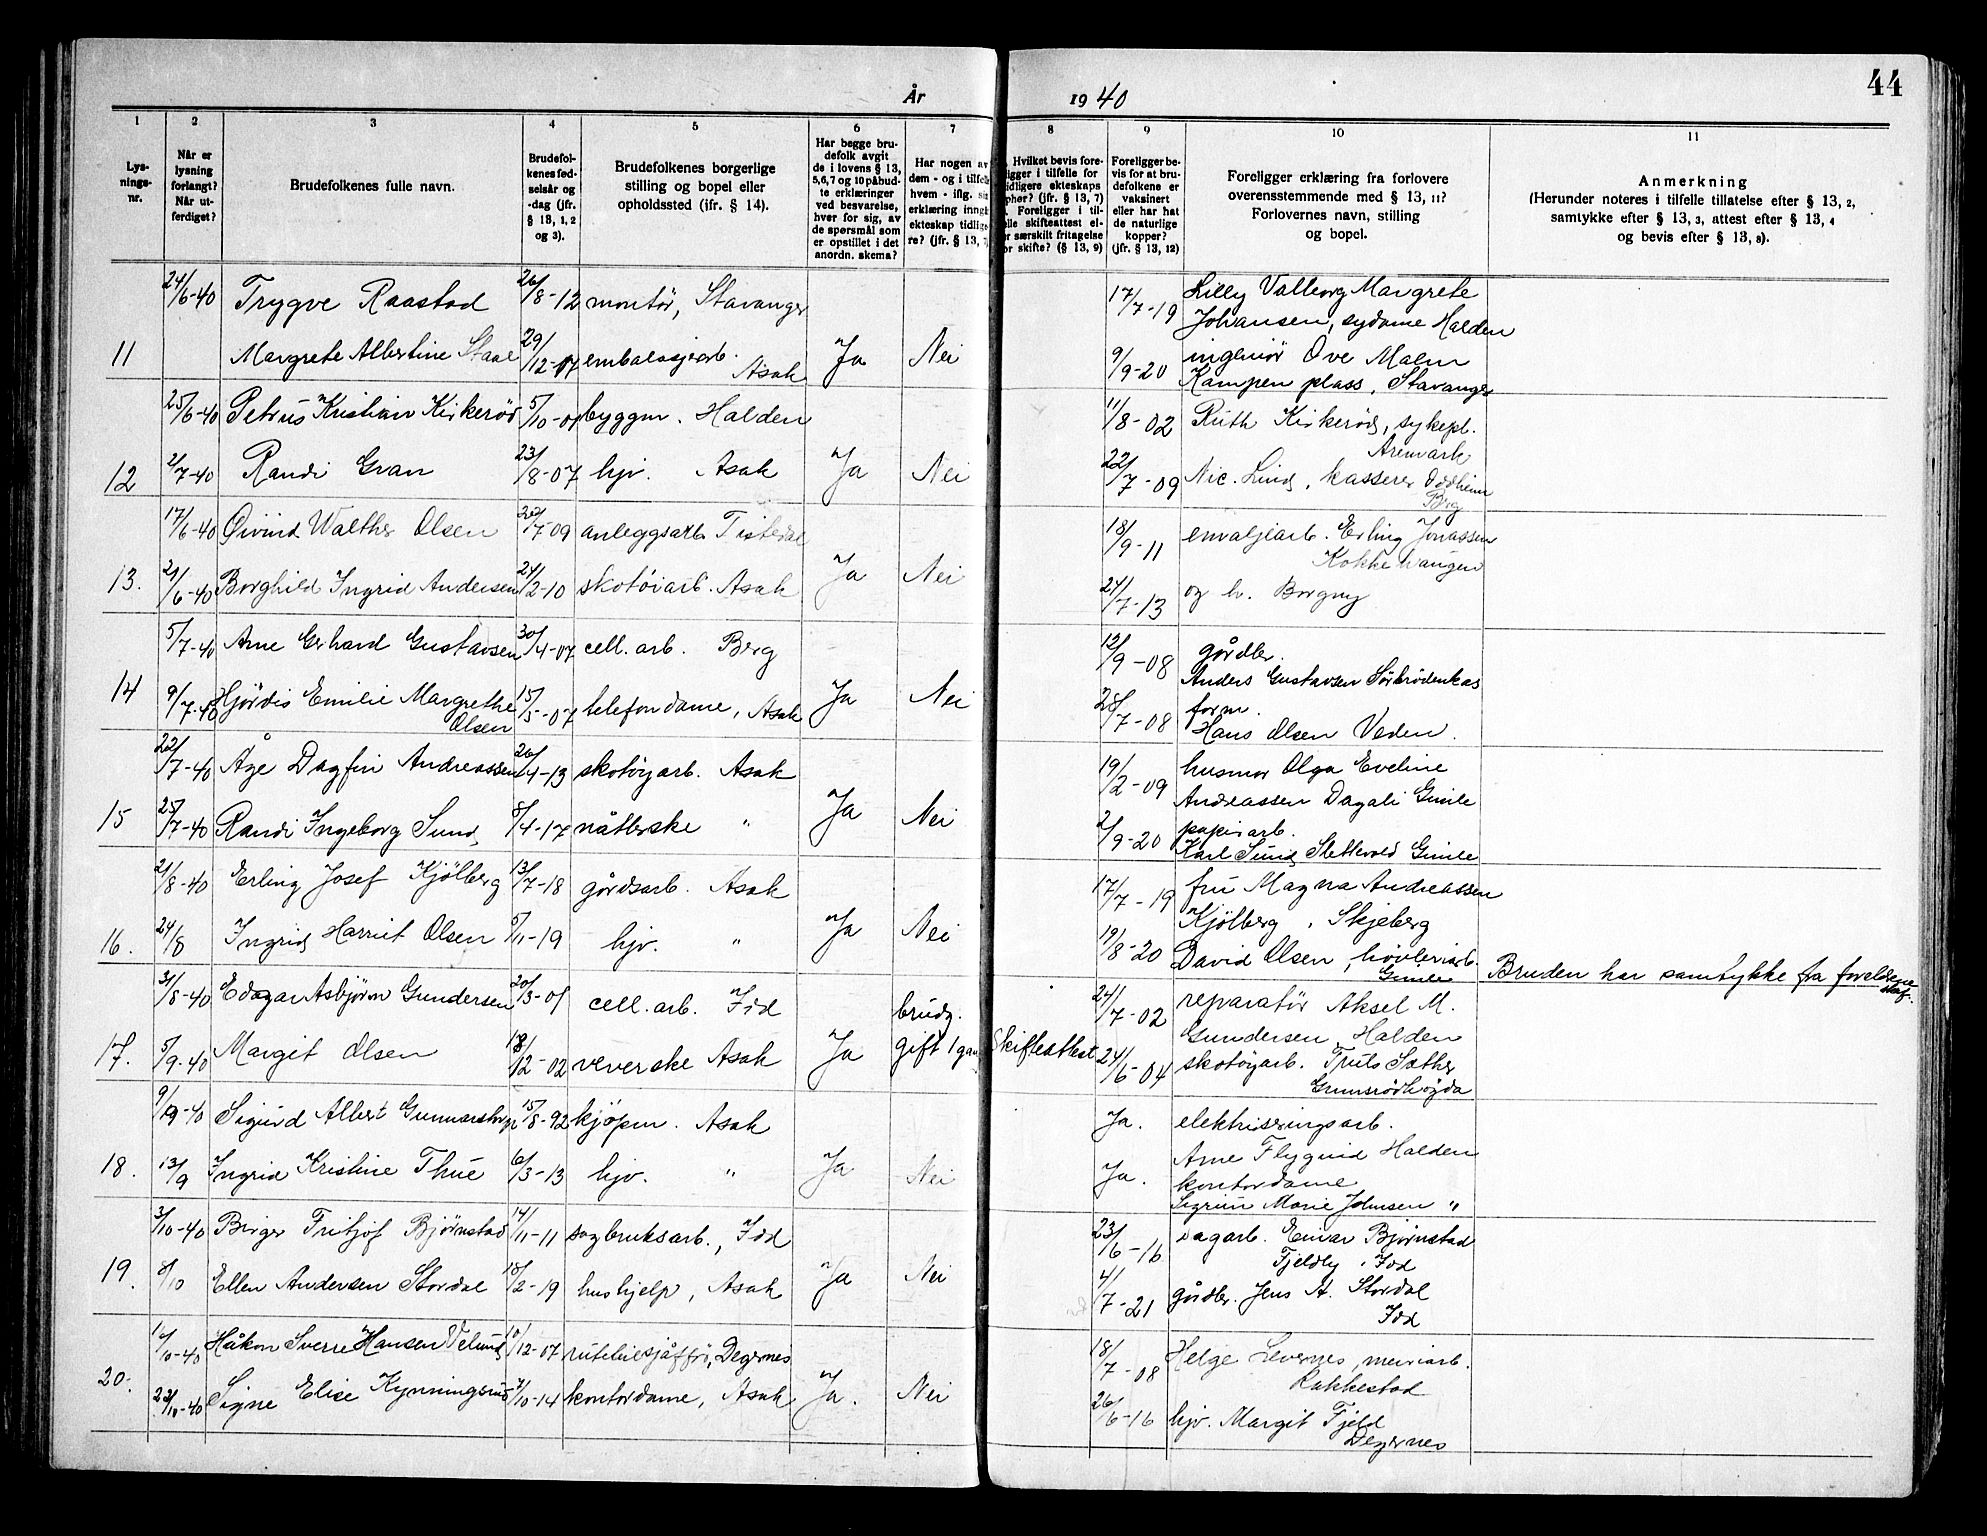 44
År 1940
1 2 3 4 5 6 7 8 9 10 11
Lys-
nings-
nr.
Når er
lysning
forlangt?
Når ut-
ferdiget?
Brudefolkenes fulle navn.
Brudefol-
kenes fød-
selsår og
-dag (jfr.
§ 13, 1, 2
og 3).
Brudefolkenes borgerlige
stilling og bopel eller
opholdssted (ifr. § 14).
Har begge bru-
defolk avgit
de i lovens § 13,
5,6,7 og 10 påbud-
te erklæringer
ved besvarelse,
hver for sig, av
de spørsmål som
er opstillet i det
anordn. skema?
Har nogen av
dem - og i tilfelle
hvem - iflg. sin
erklæring inngått
ekteskap tidlige-
re? (jfr. § 13, 7)
Hvilket bevis fore-
ligger i tilfelle for
tidligere ekteskaps
ophør? (jfr. § 13, 7)
Foreligger i til-
felle skifteattest el-
ler særskilt fritagelse
for skifte? (§ 13, 9)
Foreligger be-
vis for at bru-
defolkene er
vaksinert
eller har hat
de naturlige
kopper?
(jfr. § 13, 12)
Foreligger erklæring fra forlovere
overensstemmende med § 13, 11?
Forlovernes navn, stilling
og bopel.
Anmerkning
(Herunder noteres i tilfelle tillatelse efter § 13, 2,
samtykke efter § 13, 3, attest efter § 13, 4
og bevis efter § 13, 8).
24/6-40 Trygve Raastad 26/8-12 montør, Stavanger 17/7-19 Lilly Valborg Margrete
Johansen, sydame Halden
11 Margrete Albertine Staal 29/12-07 embalasjearb. Asak Ja Nei 9/9-20 ingeniør Ove Malm
Kampen plass, Stavanger
25/6-40 Petrus Kristian Kirkerød 5/10-01 byggm. Halden 11/8-02 Ruth Kirkerød, sykepl.
Aremark
12 2/7-40 Randi Gran 23/8-07 hjv. Asak Ja Nei 22/7-09 Nic. Lind, kasserer Oddheim
Berg
17/6-40 Øivind Walther Olsen 7-09 anleggsarb. Tistedal 18/9-11 emaljearb. Erling Jonassen
13. 21/6-40 Borghild Ingrid Andersen 24/2-10 skotøiarb. Asak Ja Nei 21/7-13 og h. Borgny
5/7-40 Arne Gerhard Gustavsen 30/4-07 cell. arb. Berg 12/9-08 gårdbr.
Anders Gustavsen Sørbrødenkas
14 9/7-40 Hjørdis Emilie Margrethe
Olsen 15/5-07 telefondame, Asak Ja Nei 28/7-08 form.
Hans Olsen Veden.
22/7-40 Åge Dagfin Andreassen 26/4-13 skotøyarb. Asak 19/2-09 husmor Olga Eveline
Andreassen Dagali Gimle
15 25/7-40 Randi Ingeborg Sund 8/4-17 nåtlerske " Ja Nei 2/9-20 papirarb.
Karl Sund Slettevold Gimle
21/8-40 Erling Josef Kjölberg 13/7-18 gårdsarb. Asak 17/7-19 fru Magna Andreassen
Kjölberg, Skjeberg
16. 24/8 Ingrid Harriet Olsen 5/11-19 hjv. " Ja Nei 19/8-20 David Olsen, høvleriarb.
Gimle Bruden har samtykke fra foreldrene
31/8-40 Edgar Asbjørn Gundersen 20/3-01 cell. arb. Idd brudg. 24/7-02 reparatør Aksel M.
Gundersen, Halden
17. 5/9-40 Margit Olsen 18/12-02 veverske Asak Ja gift 1 gang Skifteattest 24/6-04 skotøyarb. Truls Sæther
Grimsrødhøgda
9/9-40 Sigurd Albert Gunnarstorp 15/8-92 kjøpm. Asak Ja. elektriseringsarb.
Arne Flygind Halden
18. 13/9 Ingrid Kristine Thue 6/3-13 hjv. " Ja Nei Ja. kontordame
Sigrun Marie Johnsen "
3/10-40 Birger Fritjof Bjørnstad 14/11-11 sagbruksarb., Idd 23/6-16 sagarb. Einar Bjørnstad
Fjeldly, Idd
19. 8/10 Ellen Andersen Stordal 18/2-19 hushjelp, Asak Ja Nei 4/7-21 gårdbr. Jens A. Stordal
Idd
/10-40 Håkon Sverre Hansen Velund 10/12-07 rutebilsjåffør, Degernes 18/7-08 Helge Levernes, meieriarb.
Rakkestad
20. 22/10-40 Signe Elise Kynningsrud 7/10-14 kontordame, Asak Ja. Nei 26/6-16 hjv. Margit Fjeld
Degernes